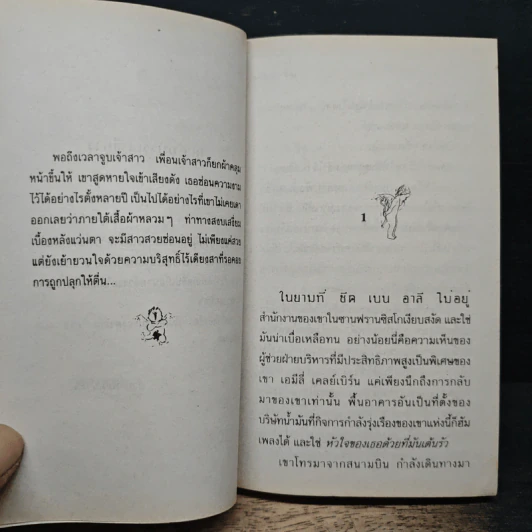 พอถึงเวลาจูบเจ้าสาว เพื่อนเจ้าสาวก็ยกผ้าคลุม
หน้าขึ้นให้ เขาสูดหายใจเข้าเสียงดัง เธอซ่อนความงาม
ไว้ได้อย่างไรตั้งหลายปี เป็นไปได้อย่างไรที่เขาไม่เคยเดา
ออกเลยว่าภายใต้เสื้อผ้าหลวมๆ ท่าทางสงบเสงี่ยม
เบื้องหลังแว่นตา จะมีสาวสวยซ่อนอยู่ ไม่เพียงแค่สวย
แต่ยังเย้ายวนใจด้วยความบริสุทธิ์ไร้เดียงสาที่รอคอย
การถูกปลุกให้ตื่น...
1
ในยามที่ ชีค เบน ฮาลี ไม่อยู่
สำนักงานของเขาในซานฟรานซิสโกเงียบสงัด และใช่
มันน่าเบื่อเหลือทน อย่างน้อยนี่คือความเห็นของ
ผู้ช่วยฝ่ายบริหารที่มีประสิทธิภาพสูงเป็นพิเศษของ
เขา เอมิลี่ เคลย์เบิร์น แค่เพียงนึกถึงการกลับ
มาของเขาเท่านั้น พื้นอาคารอันเป็นที่ตั้งของ
บริษัทน้ำมันที่กิจการกำลังรุ่งเรืองของเขาแห่งนี้ก็ฮัม
เพลงได้ และใช่ หัวใจของเธอด้วยที่มันเต้นรัว
เขาโทรมาจากสนามบิน กำลังเดินทางมา